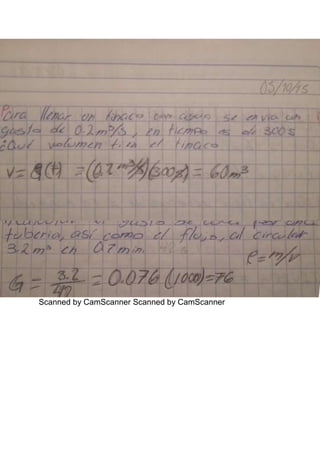 05/10/15
Para llenar un tinaco con agua se envia un
gasto de 0.2 m³/s, en tiempo es de 300 s
¿Que volumen tien el tinaco
V= G(t) = (0.2 m³/s)(300s) = 60 m³
gasto de por una
tuberia, así como el flujo, al circular
3.2 m³ en 0.7 min.
ρ = m/v
G = 3.2 / 42 = 0.076 (1000) = 76
Scanned by CamScanner Scanned by CamScanner